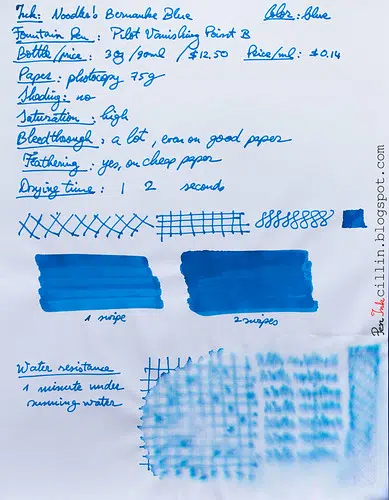 Ink: Noodler's Bernanke Blue Color: blue
Fountain Pen: Pilot Vanishing Point B
Bottle/price: 3oz/90ml / $12.50 Price/ml: $0.14
Paper: photocopy 75g
Shading: no
Saturation: high
Bleedthrough: a lot, even on good paper
Feathering: yes, on cheap paper
Drying time: 1 2 seconds
1 swipe 2 swipes
Water resistance
1 minute under
running water
Pen Ink cillin.blogspot.com